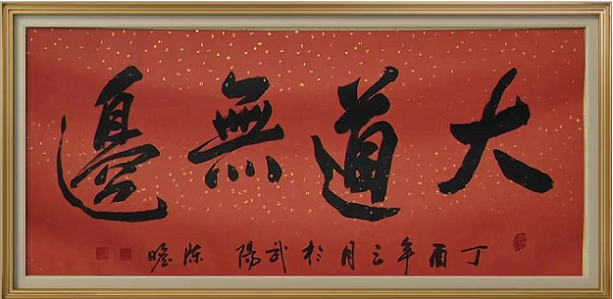 大道無邊
丁酉年三月於武陽 陈瞻